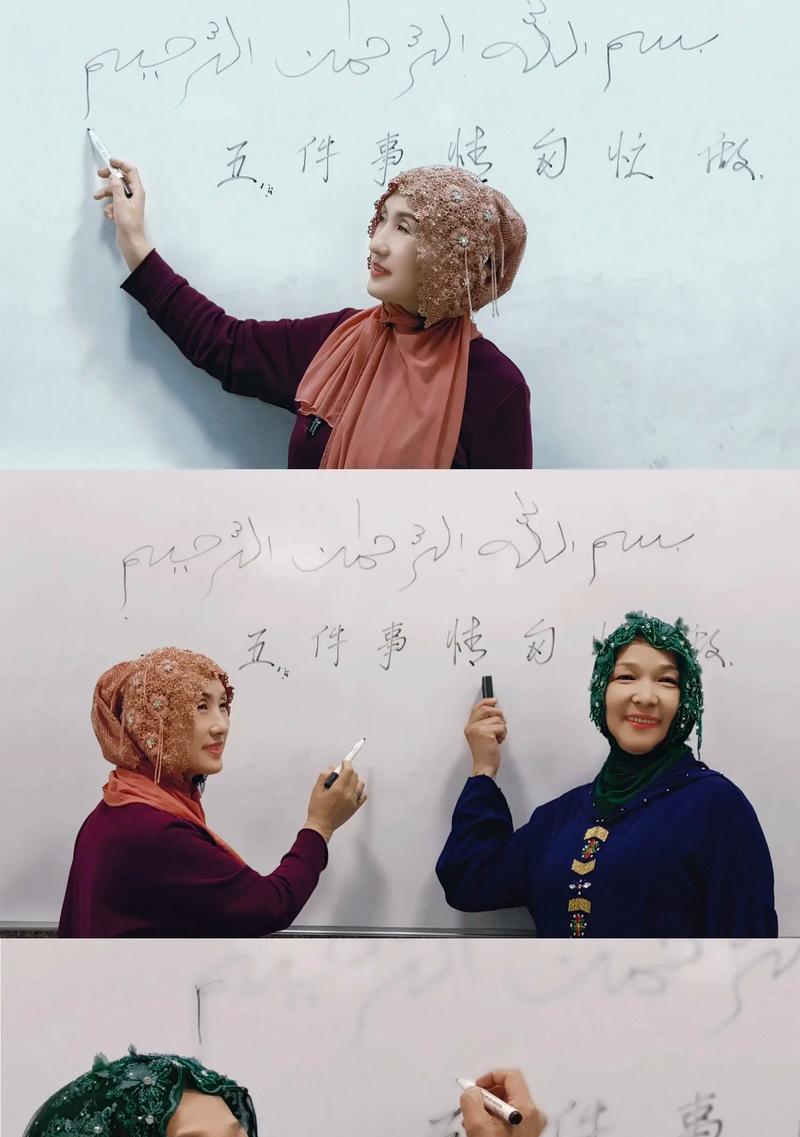 بسم الله الرحمن الرحيم
五件事情匆忙做.
بسم الله الرحمن الرحيم
五件事情匆
件事